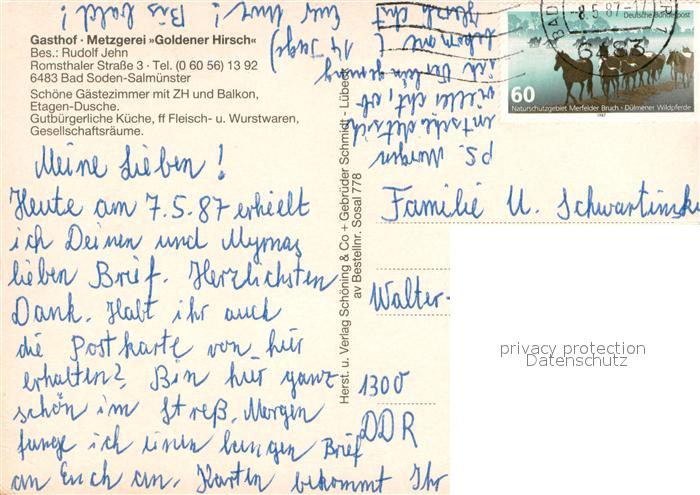 Gasthof · Metzgerei »Goldener Hirsch«
Bes.: Rudolf Jehn
Romsthaler Straße 3 · Tel. (0 60 56) 13 92
6483 Bad Soden-Salmünster
Schöne Gästezimmer mit ZH und Balkon,
Etagen-Dusche.
Gutbürgerliche Küche, ff Fleisch- u. Wurstwaren,
Gesellschaftsräume.
Meine Lieben!
Heute am 7.5.87 erhielt
ich Deinen und Myrnas
lieben Brief. Herzlichsten
Dank. Habt ihr auch
die Postkarte von hier
erhalten? Bin hier ganz
schön im Streß. Morgen
fange ich einen langen Brief
an Euch an. Karten bekommt Ihr
Bis bald!
P.S. Morgen
entscheidet sich
vielleicht, ob
ich Verlängerung
(14 Tage)
bekomme
Herst. u. Verlag Schöning & Co + Gebrüder Schmidt - Lübeck
av Bestellnr. Sosal 778
BAD
-8.5.87-17
6483
Deutsche Bundespost
60
Naturschutzgebiet Merfelder Bruch · Dülmener Wildpferde
1987
Familie U. Schwartinski
Walter-
1300
DDR
privacy protection
Datenschutz